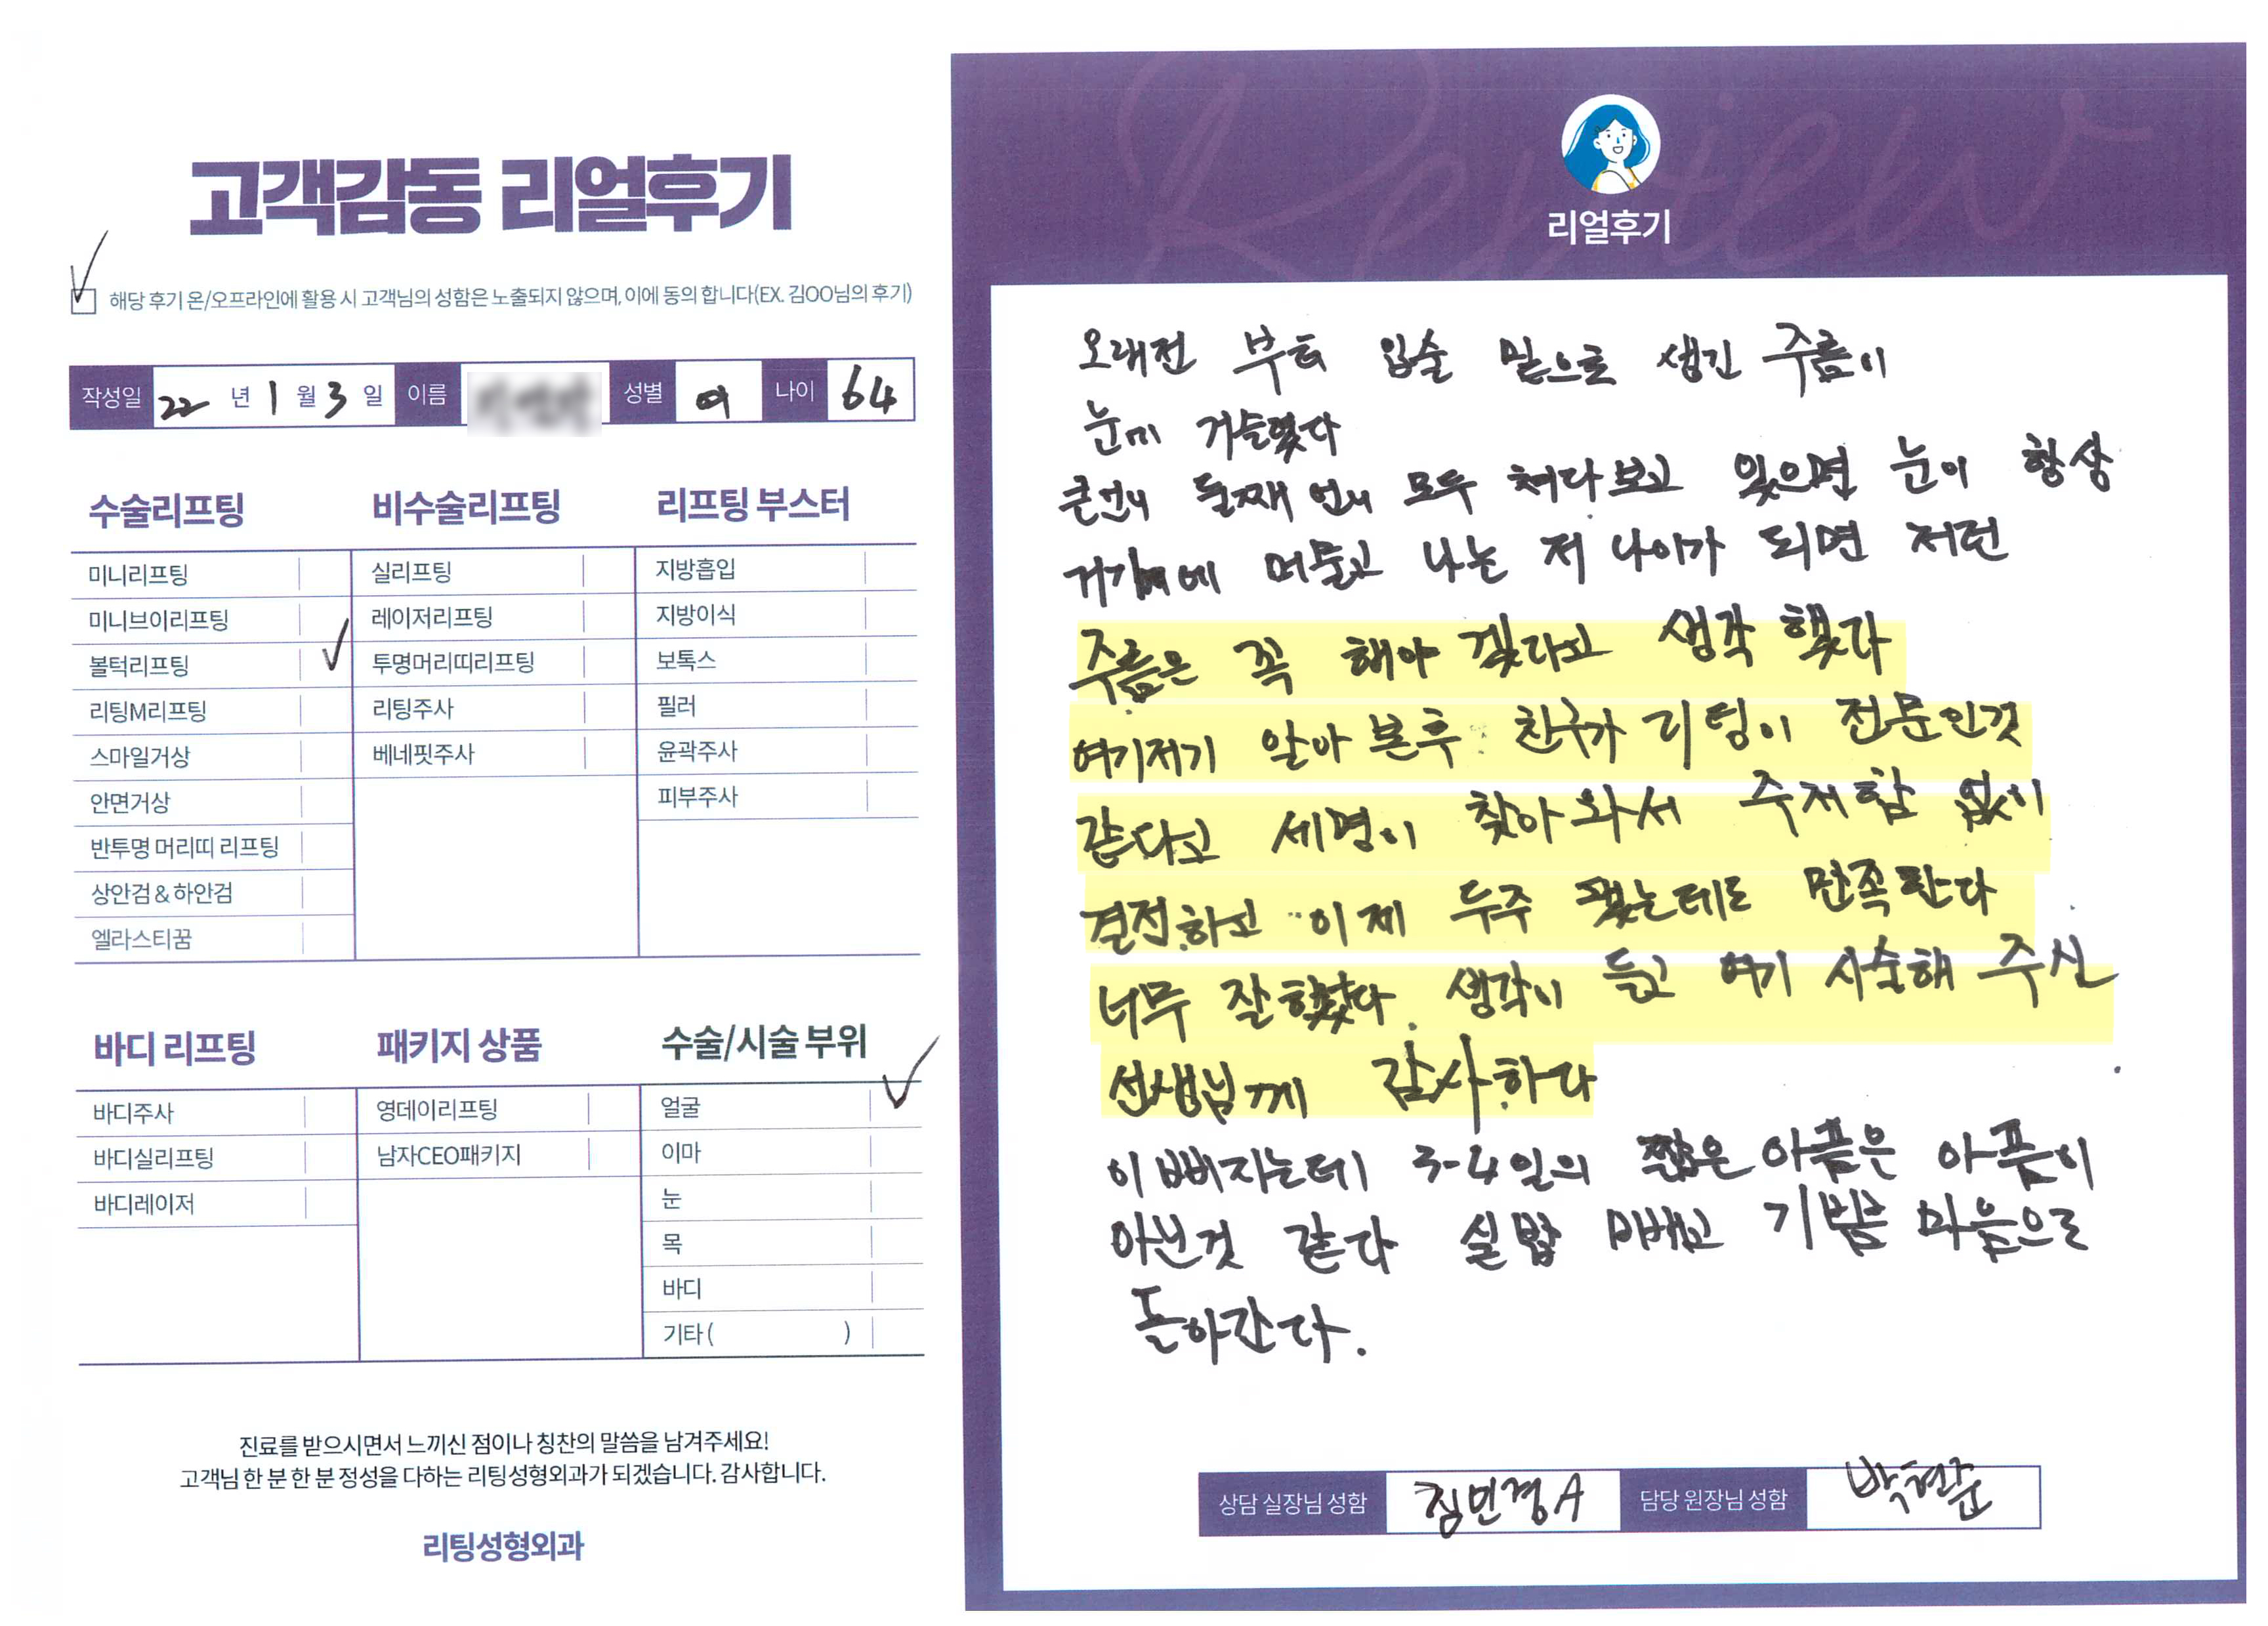 고객감동 리얼후기
해당 후기 온/오프라인에 활용 시 고객님의 성함은 노출되지 않으며, 이에 동의 합니다(EX. 김OO님의 후기)
작성일 22 년 1 월 3 일 이름 성별 여 나이 64
수술리프팅
미니리프팅
미니브이리프팅
볼턱리프팅
리팅M리프팅
스마일거상
안면거상
반투명 머리띠 리프팅
상안검 & 하안검
엘라스티꿈
비수술리프팅
실리프팅
레이저리프팅
투명머리띠리프팅
리팅주사
베네핏주사
리프팅 부스터
지방흡입
지방이식
보톡스
필러
윤곽주사
피부주사
바디 리프팅
바디주사
바디실리프팅
바디레이저
패키지 상품
영데이리프팅
남자CEO패키지
수술/시술 부위
얼굴
이마
눈
목
바디
기타 ( )
진료를 받으시면서 느끼신 점이나 칭찬의 말씀을 남겨주세요!
고객님 한 분 한 분 정성을 다하는 리팅성형외과가 되겠습니다. 감사합니다.
리팅성형외과
Review
리얼후기
오래전 부터 입술 밑으로 생긴 주름이
눈에 거슬렸다
큰언니 둘째 언니 모두 쳐다보고 있으면 눈이 항상
거기에 머물고 나는 저 나이가 되면 저런
주름은 꼭 해야 겠다고 생각 했다
여기저기 알아 본후 친구가 리팅이 전문인것
같다고 세명이 찾아와서 주저함 없이
결정하고 이제 두주 됐는데도 만족한다
너무 잘했다 생각이 들고 여기 시술해 주신
선생님께 감사하다
이뻐지는데 3-4일의 짧은 아픔은 아픔이
아닌것 같다 실밥 마빼고 기쁨 마음으로
돌아간다.
상담 실장님 성함 김민경A 담당 원장님 성함 박현준